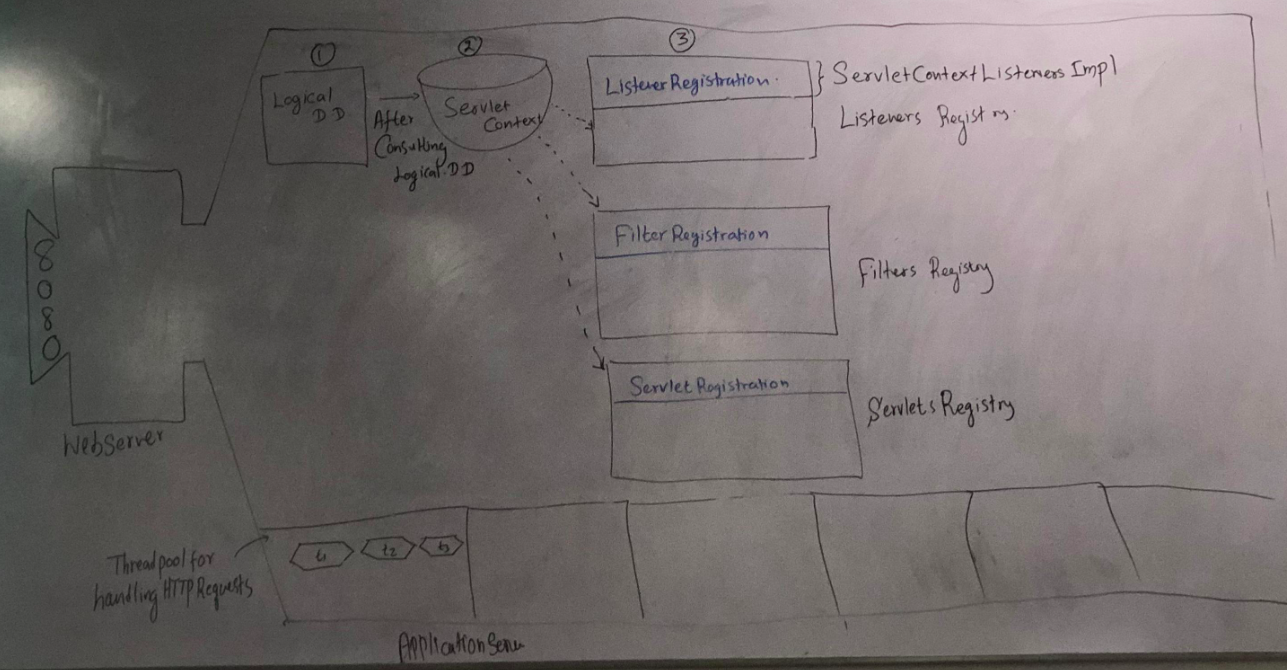 ①
②
③
Logical
DD
After
Consulting
Logical DD
Servlet
Context
Listener Registration.
ServletContextListenersImpl
Listeners Registry.
Filter Registration
Filters Registry
Servlet Registration
Servlets Registry
8
0
8
0
WebServer
Threadpool for
handling HTTP Requests
t1
t2
t3